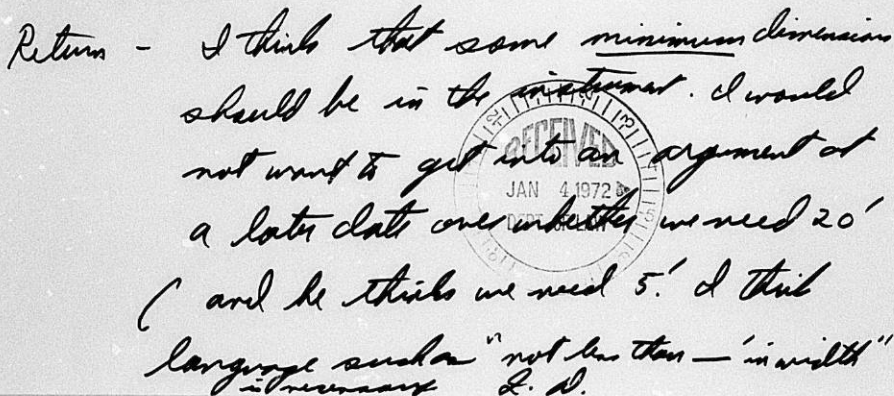 Return - I think that some minimum dimension
should be in the instrument. I would
not want to get into an argument at
a later date over whether we need 20'
( and he thinks we need 5'. I think
language such as "not less than — ' in width"
is necessary
RECEIVED
JAN 4 1972
DEPT. OF